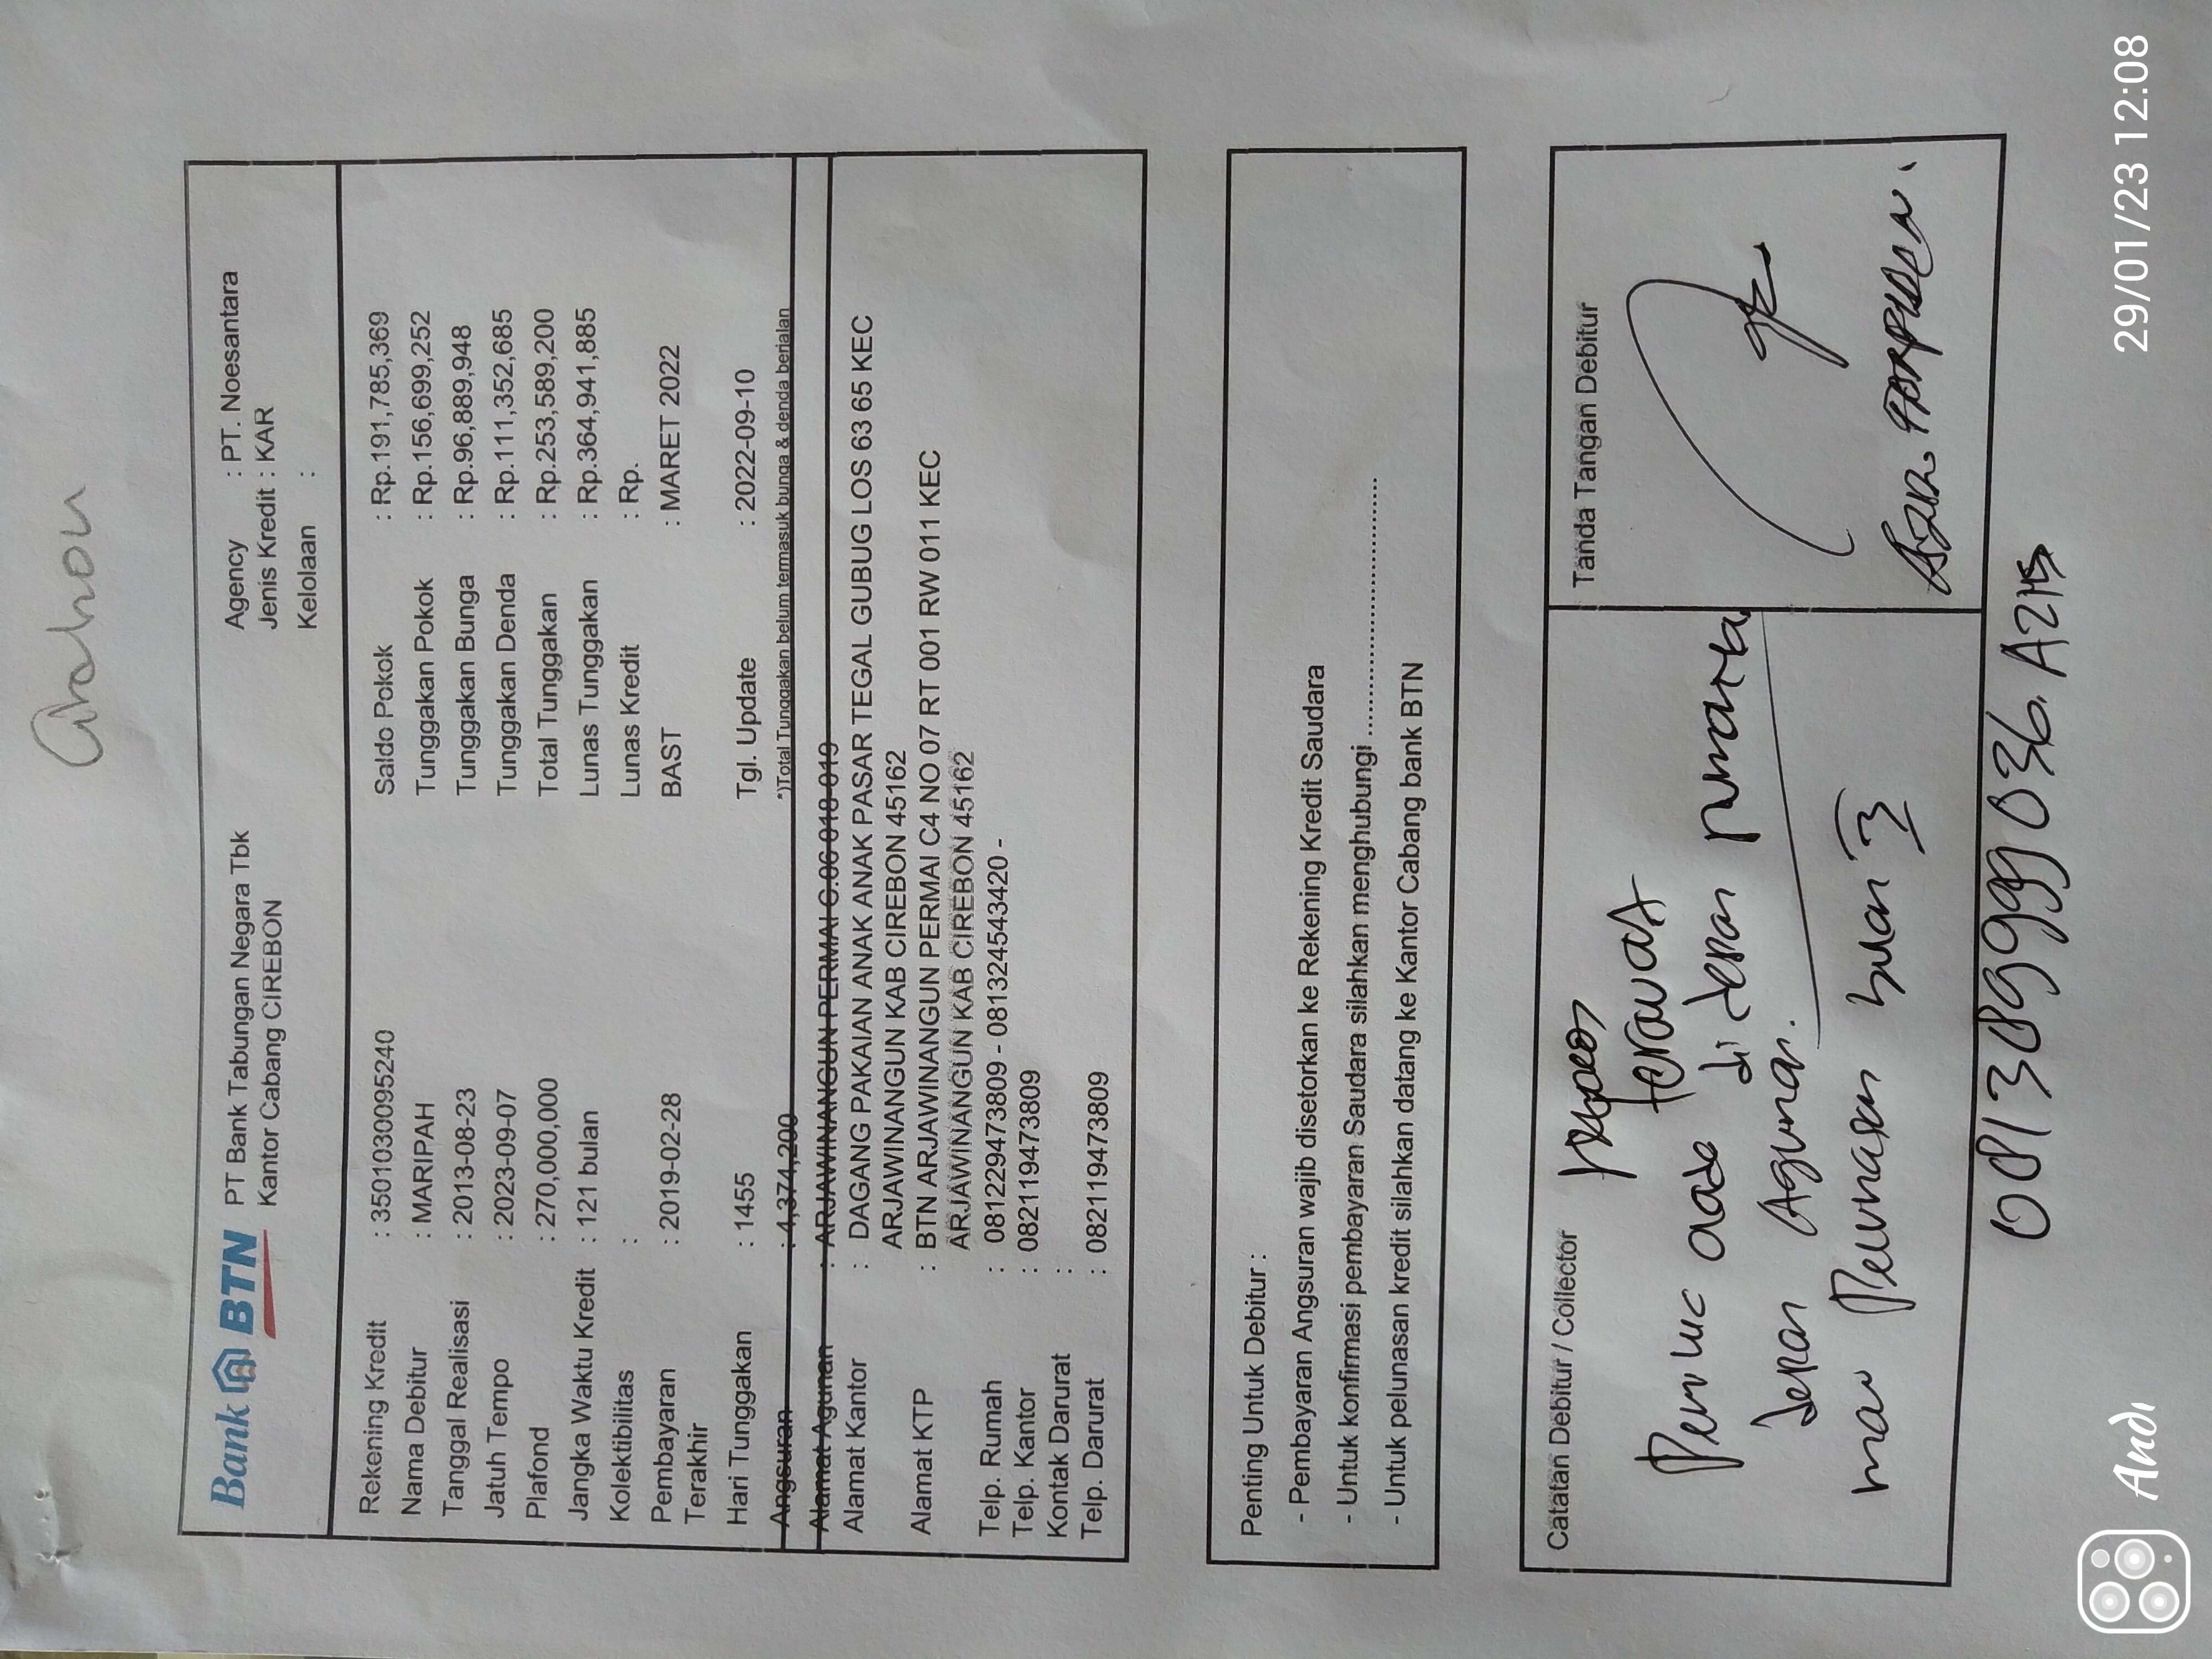 Bank BTN
PT Bank Tabungan Negara Tbk
Kantor Cabang CIREBON
Agency : PT. Noesantara
Jenis Kredit : KAR
Kelolaan :
Rekening Kredit : 3501030095240
Nama Debitur : MARIPAH
Tanggal Realisasi : 2013-08-23
Jatuh Tempo : 2023-09-07
Plafond : 270,000,000
Jangka Waktu Kredit : 121 bulan
Kolektibilitas :
Pembayaran Terakhir : 2019-02-28
Hari Tunggakan : 1455
Angsuran : 4,374,200
Saldo Pokok : Rp.191,785,369
Tunggakan Pokok : Rp.156,699,252
Tunggakan Bunga : Rp.96,889,948
Tunggakan Denda : Rp.111,352,685
Total Tunggakan : Rp.253,589,200
Lunas Tunggakan : Rp.364,941,885
Lunas Kredit : Rp.
BAST : MARET 2022
Tgl. Update : 2022-09-10
*)Total Tunggakan belum termasuk bunga & denda berjalan
Alamat Agunan : ARJAWINANGUN PERMAI C.06 018 019
Alamat Kantor : DAGANG PAKAIAN ANAK ANAK PASAR TEGAL GUBUG LOS 63 65 KEC
ARJAWINANGUN KAB CIREBON 45162
Alamat KTP : BTN ARJAWINANGUN PERMAI C4 NO 07 RT 001 RW 011 KEC
ARJAWINANGUN KAB CIREBON 45162
Telp. Rumah : 081229473809 - 081324543420 -
Telp. Kantor : 082119473809
Kontak Darurat :
Telp. Darurat : 082119473809
Penting Untuk Debitur :
- Pembayaran Angsuran wajib disetorkan ke Rekening Kredit Saudara
- Untuk konfirmasi pembayaran Saudara silahkan menghubungi ..............................
- Untuk pelunasan kredit silahkan datang ke Kantor Cabang bank BTN
Catatan Debitur / Collector
terawat
ada di depan rumah
depan Agunan.
mau Pelunasan bulan 3
Tanda Tangan Debitur
081389999036. AZIS
Andi
29/01/23 12:08